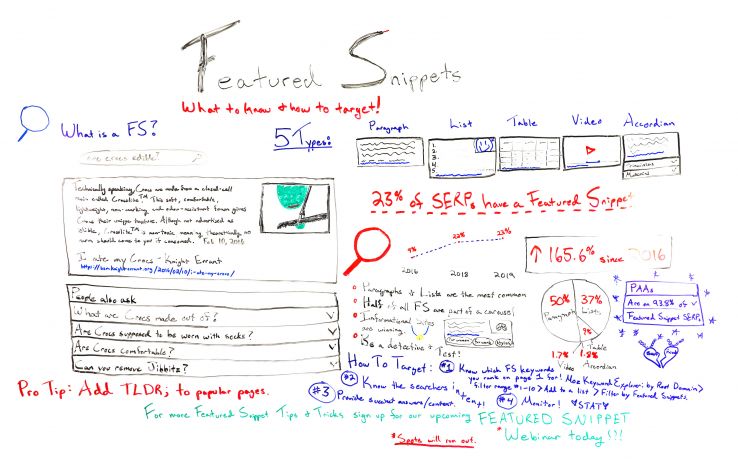 Featured Snippets
What to know & how to target!
What is a FS?
are crocs edible?
Technically speaking Crocs are made from a closed-cell
resin called Croslite™. This soft, comfortable,
lightweight, non-marking and odor-resistant foam gives
Crocs their unique texture. Although not advertised as
edible, Croslite™ is non-toxic meaning, theoretically, no
harm should come to you if consumed. Feb 10, 2016
I ate my Crocs - Knight Errant
People also ask
What are Crocs made out of?
Are Crocs supposed to be worn with socks?
Are Crocs comfortable?
Can you remove Jibbitz?
Pro Tip: Add TLDR; to popular pages.
5 Types:
Paragraph
List
Table
Video
Accordian
1.
2.
3.
4.
5.
23% of SERPs have a Featured Snippet
9%
22%
23%
2016
2018
2019
↑ 165.6% since 2016
Paragraphs & Lists are the most common
Half of all FS are part of a carousel
Informational sites
are winning.
Be a detective & Test!
50%
Paragraph
37%
Lists
9%
Table
1.7%
Video
1.8%
Accordian
PAAs
Are on 93.8% of
Featured Snippet SERPs
How To Target:
#1 Know which FS keywords
you rank on page 1 for! Moz Keyword Explorer: by Root Domain >
Filter range #1-10 > Add to a list > Filter by Featured Snippets.
#2 Know the searchers intent
#3 Provide succinct answers/content.
#4 Monitor! *STAT*
For more Featured Snippet Tips & Tricks sign up for our upcoming FEATURED SNIPPET
Webinar today!!!
*Seats will run out.